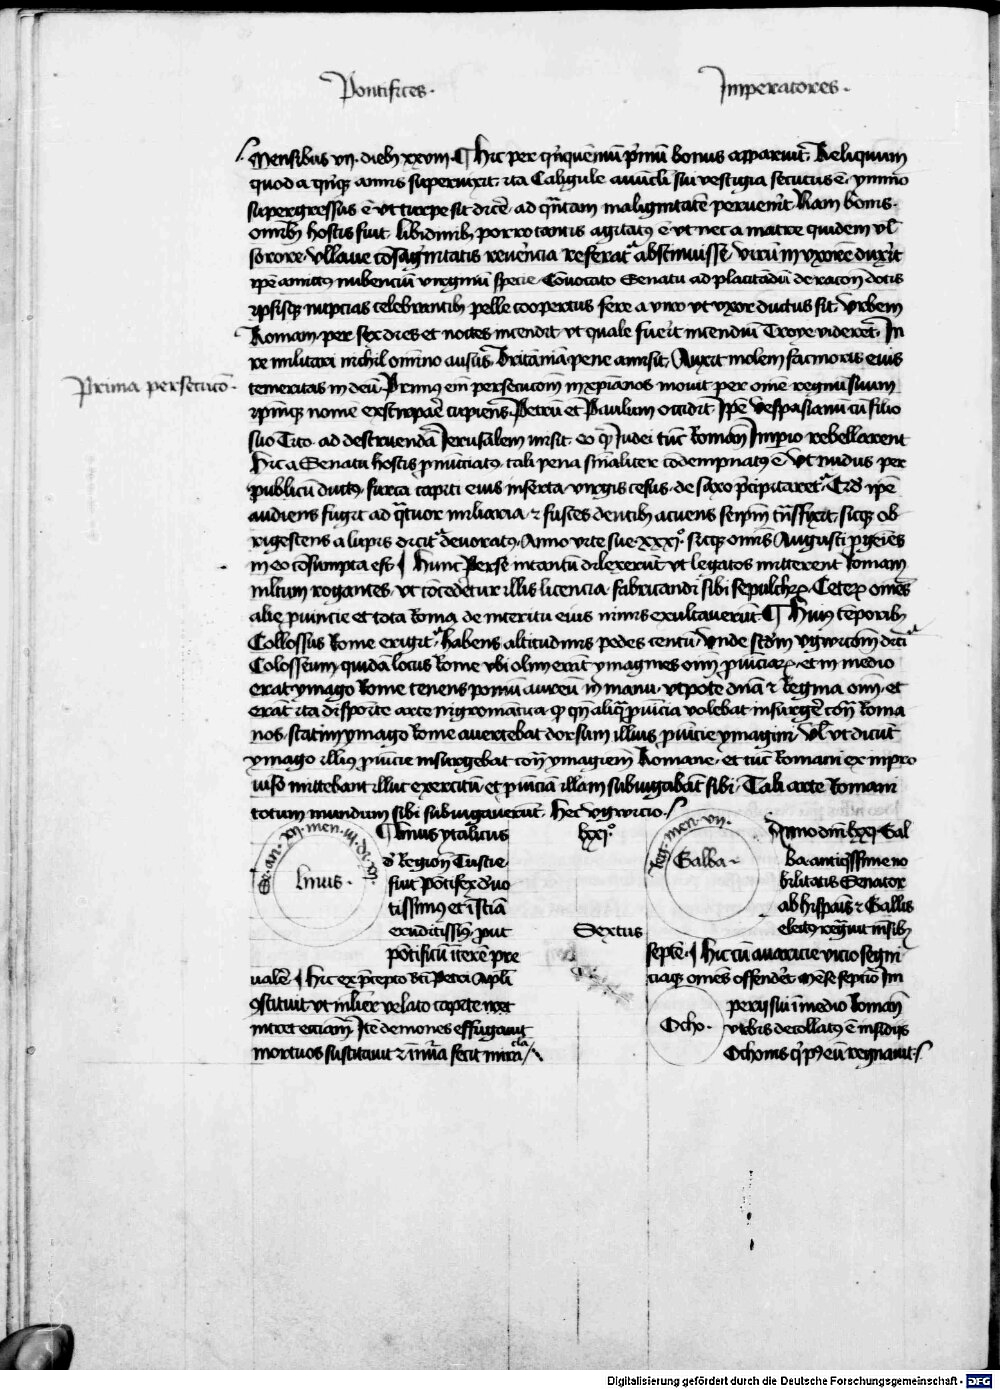 Pontifices · Imperatores ·
Mensibus vii · dieb xxviii · ¶ Hic per qnquēniū prmū bonus apparuit · Reliquum
quod a qnqꝫ annis supervixit · ita Caligule avūcli sui vestigia secutus ē · ymmo
supergressus ē vt turpe sit dicē · ad qntam malignitatē pervenit · Nam bonis ·
omnibꝫ hostis fuit · libidinibꝫ porro tantis agitatꝰ ē vt nec a matre quidem vl
sorore · vllave cōsagnitatis reverēcia referat abstinuisse · virū in vxorē duxit
ipē amictus nubenciū virginū specie · Cōvocato Senatu ad placitādū de racōn dotis
ipsisqꝫ nupcias celebrantibꝫ pelle coopertus fere a viro vt vxor ductus sit · Vrbem
Romam · per sex dies et noctes incendit · vt quale fuerit incendiū Troye videret · In
re militari nichil omnino ausus · Britāniā pene amisit · Auxit molem facinoris eius
Prima persecucō ·
temeritas in deū · Primꝰ em persecucōm in xpianos movit per omē regnū suum
ipmqꝫ nomē exstirpare cupiens · Petrū et Paulum occidit · Ipē vespasianū cū filio
suo Tito · ad destruendā Jerusalem misit · eo qꝫ Judei tūc Romān Impio rebellarent
Hic a Senatu hostis pnūciatꝰ · tali pena finaliter cōdempnatꝰ ē · Vt nudus per
publicū ductꝰ · furca capiti eius inserta · virgis cesus · de saxo pcipitaret · Qd ipē
audiens fugit ad qtuor miliaria · ⁊ fustes dentibꝫ acuens seipm tnsfixit · sicqꝫ ob
rigescens a lupis dicit devoratꝰ · Anno vite sue · xxxi° · sicqꝫ omīs Augusti pgenies
in eo cōsumpta est ¶ Hunc Perse in tantū dilexerūt vt legatos mitterent Romam
militum rogantes · vt cōcedetur illis licencia · fabricandi sibi sepulchrꝝ · Ceterꝝ omēs
alie pvincie et tota Roma de interitu eius nimis exultaverūt ¶ Huiꝰ tēporibꝫ
Collossus Rome erigit · habens altitudinis pedes centū · vnde scdm vgwiconē dicit
Colosseum quidā locus Rome vbi olim erāt ymagines oim pvinciarꝝ · et in medio
erat ymago Rome tenens pomū aureū in manu · vtpote dnā ⁊ Regina oim · et
erāt ita disposite arte nigromātica · qꝫ qn aliqua pvicia volebat insurgē cōtra Roma
nos · statim ymago Rome avertebat dorsum illius pvincie ymagini · Vl vt dicūt
ymago illiꝰ pvincie insurgebat cōtra ymaginem Romane · et tūc Romani ex impro
viso mittebant illuc exercitū · et pvinciā illam subiugabāt sibi · Tali arte Romani
totum mundum sibi subiugaverūt · Hec vgwicio ·
Linus ·
¶ Linus ytalicus
d Region Tuscie
fuit pōtifex devo
tissimꝰ et i sciā
eruditissimꝰ · put
pōtificū itinere pre
valē · ¶ hic ex pcepto bti Petri Apli
cstituit vt mlier velato capite
intret ecciam · Itē demones effugavit
mortuos suscitavit ⁊ mlta fecit miracla
lxxi°
Sextus
Reg · men · vii ·
Galba ·
Anno dni lxxi Gal
ba antiqssime no
bilitatis Senator
ab hispanis ⁊ Gallis
electꝰ regnavit mēsibꝫ
septē · ¶ Hic cū avaricie vicio segni
ciaqꝫ omēs offenderet · mēse septimo Im
perij sui i medio Roman
vrbis decollatꝰ ē insidijs
Othonis qi pꝰ eū regnavit ·
Otho ·
Digitalisierung gefördert durch die Deutsche Forschungsgemeinschaft - DFG